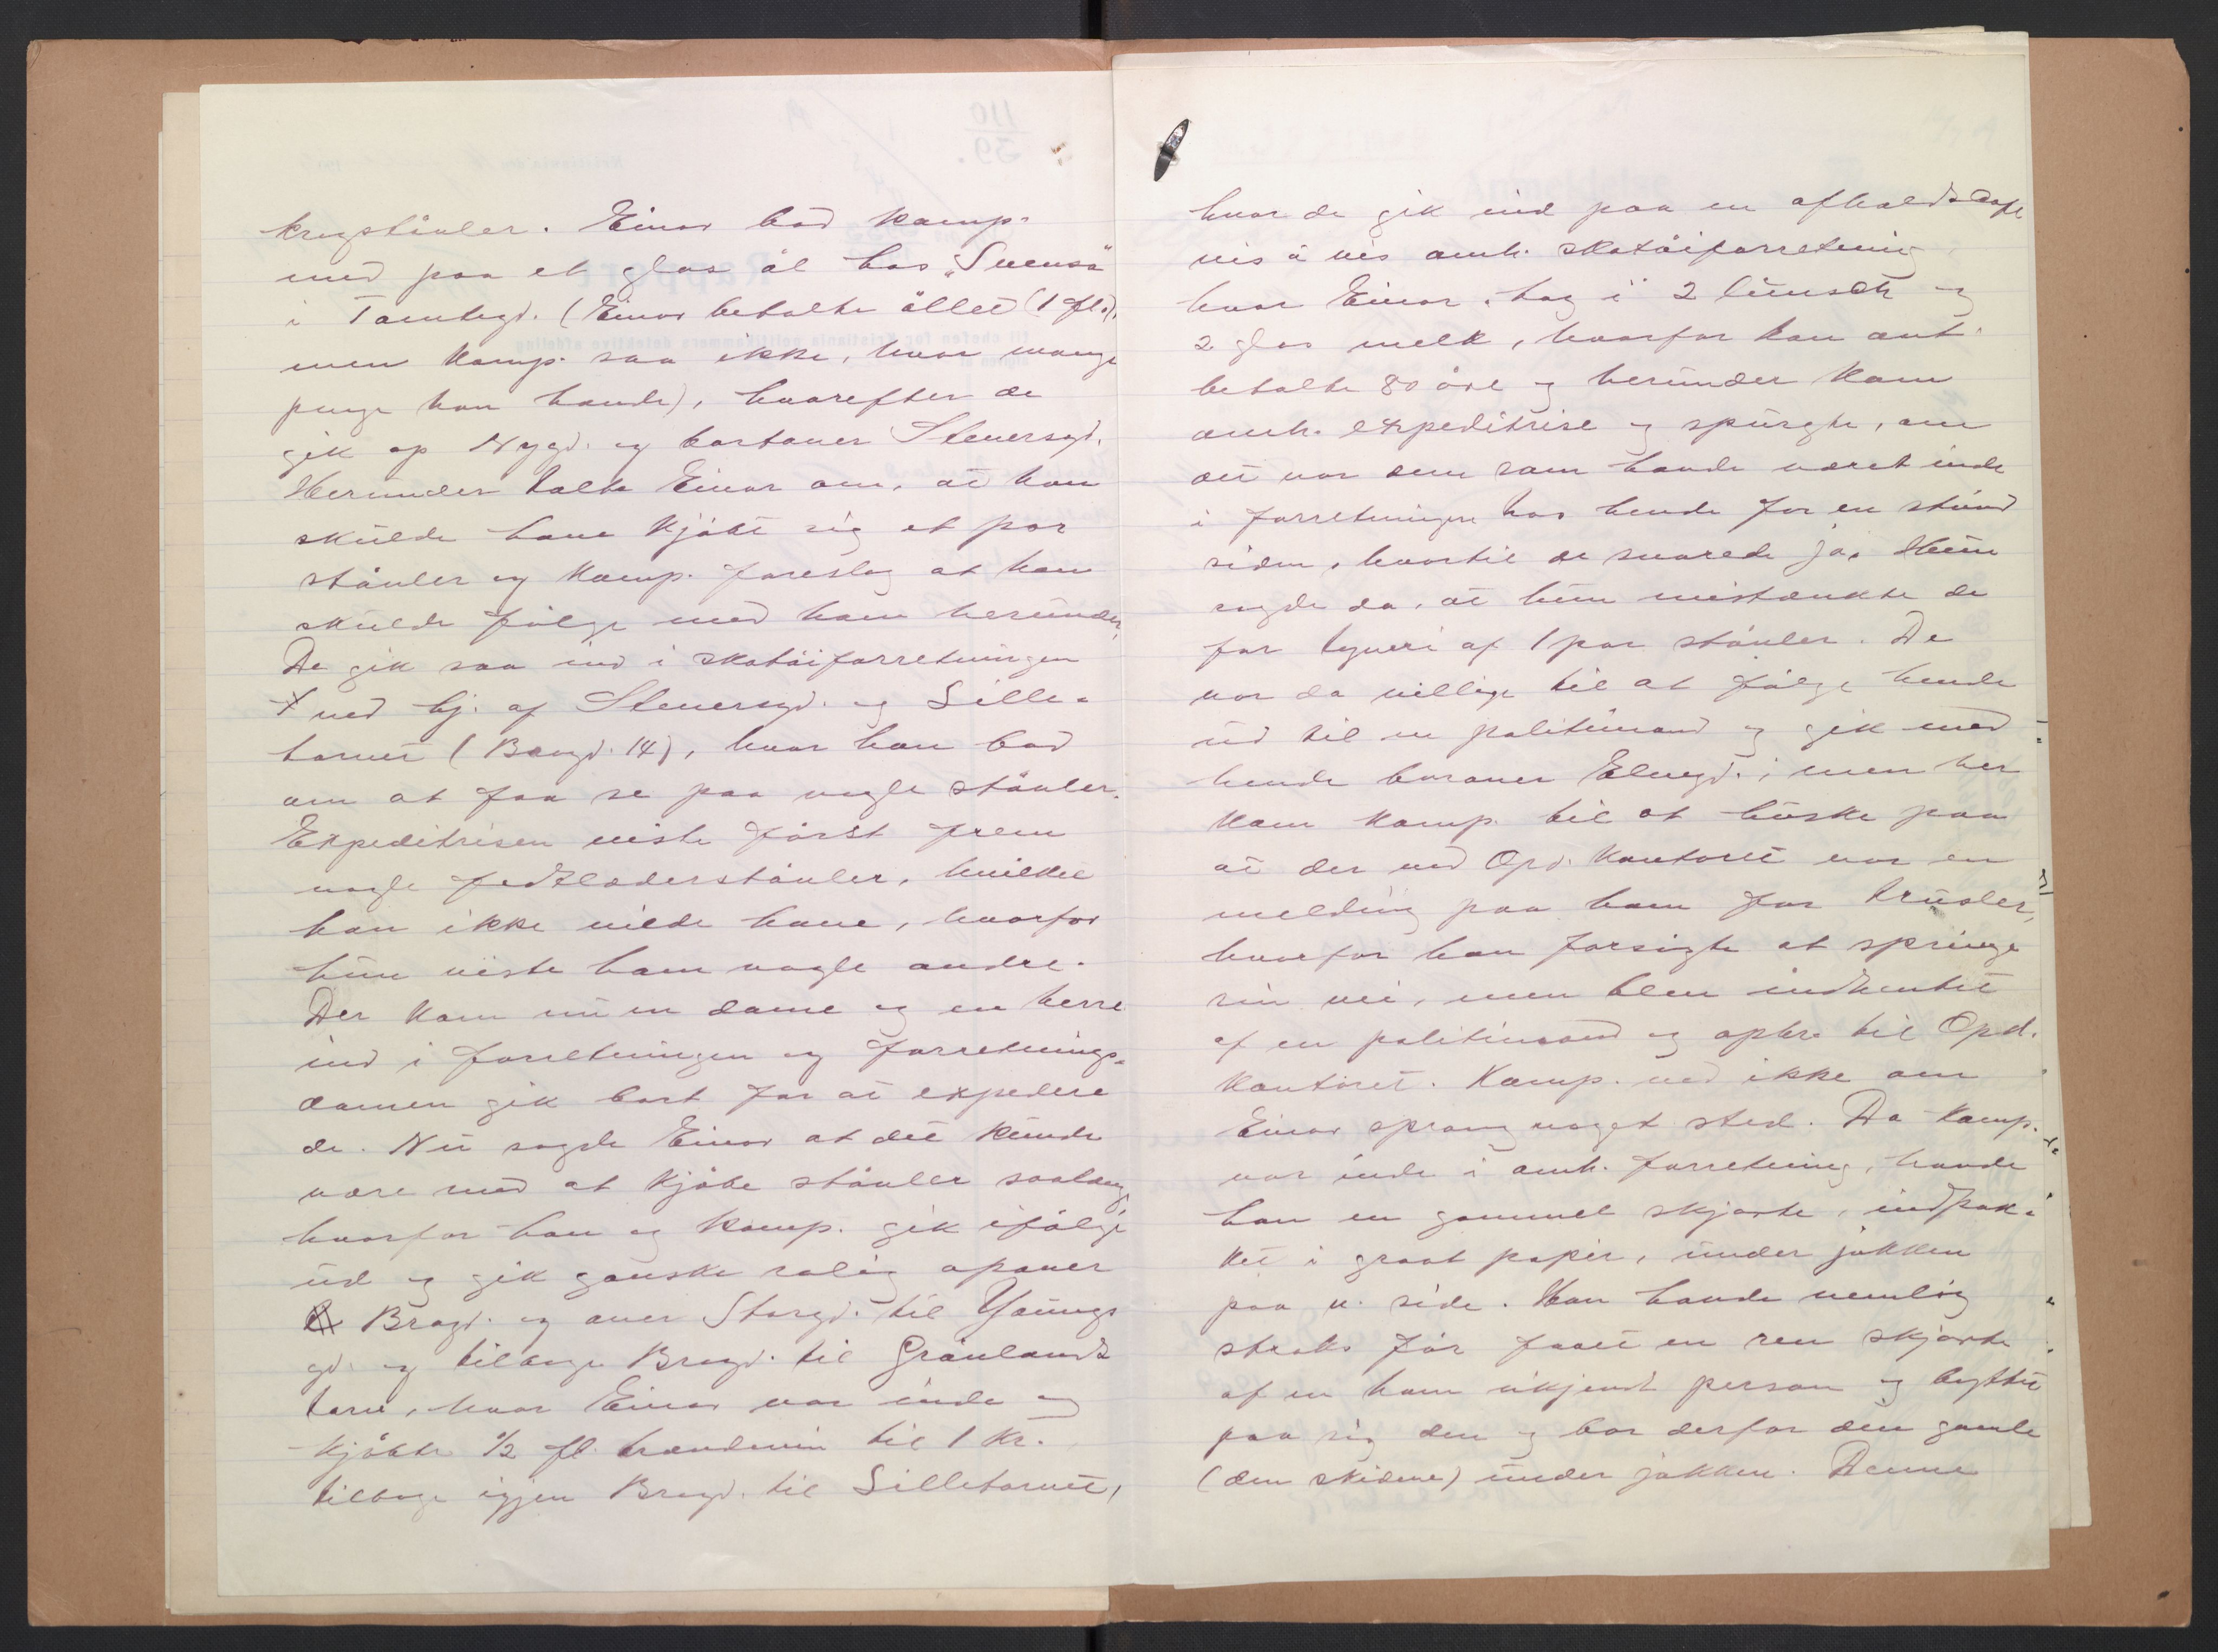 kragstövler. Einar bad Komp.
med paa et glas öl hos "Svenså"
i Tomtegd. (Einar betalte öllet (1 fl.),
men Komp. saa ikke, hvor mange
penge han havde), hvorefter de
gik op Nygd. og bortover Stenersgd.
Herunder talte Einar om, at han
skulde have kjöbt sig et par
stövler og Komp. foreslog at han
skulde fölge med ham herunder.
De gik saa ind i skotöiforretningen
ved hj. af Stenersgd. og Lille-
torvet (Brogd. 14), hvor han bad
om at faa se paa nogle stövler.
Expeditrisen viste först frem
nogle fedtlæderstövler, hvilket
han ikke vilde have, hvorfor
hun viste ham nogle andre.
Der kom nu en dame og en herre
ind i forretningen og forretnings-
damen gik bort for at expedere
de. Nu sagde Einar at det kunde
være med at kjöbe stövler saalænge
hvorfor han og Komp. gik ifölge
ud og gik ganske rolig opover
Brogd. og over Storgd. til Youngs
gd. og tilbage Brogd. til Grönlands
torv, hvor Einar var inde og
kjöbte 1/2 fl. brændevin til 1 kr.
tilbage igjen Brogd. til Lilletorvet,
hvor de gik ind paa en afholdscafe
vis à vis anh. skotöiforretning
hvor Einar tog i 2 lunsch og
2 glas melk, hvorfor han ant.
betalte 80 öre og herunder kom
anh. expeditrise og spurgte, om
det var dem som havde været inde
i forretningen hos hende for en stund
siden, hvortil de svarede ja. Hun
sagde da, at hun mistænkte de
for tyveri af 1 par stövler. De
var da villige til at fölge hende
ud til en politimand og gik med
hende bortover Elvegd.; men her
kom Komp. til at huske paa
at der ved Opd. Kontoret var en
melding paa ham for trusler,
hvorfor han forsögte at springe
sin vei, men blev indhentet
af en politimand og opbr. til Opd.
Kontoret. Komp. ved ikke om
Einar sprang noget sted. Da Komp.
var inde i anh. forretning, havde
han en gammel skjorte, indpak-
ket i graat papir, under jakken
paa v. side. Han havde nemlig
straks för faaet en ren skjorte
af en ham ukjendt person og byttet
paa sig den og bar derfor den gamle
(den skidne) under jakken. Denne